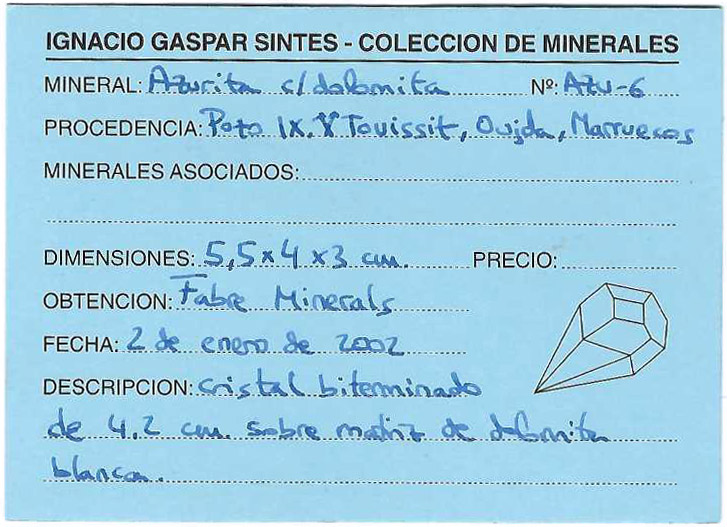 IGNACIO GASPAR SINTES - COLECCION DE MINERALES
MINERAL: Azurita c/dolomita Nº: AZU-6
PROCEDENCIA: Pozo IX. Touissit, Oujda, Marruecos
MINERALES ASOCIADOS:
DIMENSIONES: 5,5x4x3 cm. PRECIO:
OBTENCION: Fabre Minerals
FECHA: 2 de enero de 2002
DESCRIPCION: cristal biterminado
de 4,2 cm. sobre matriz de dolomita
blanca.